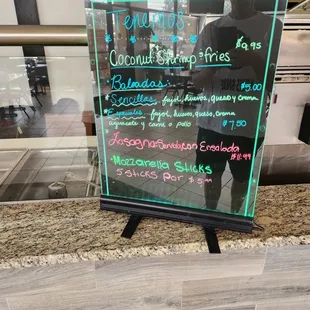 Tenemos
Coconut Shrimp + fries $9.95
Baleadas
Sencillas, frijol, huevos, queso y crema $5.00
Especiales - frijol, huevos, queso, crema
Aguacate y carne o pollo $7.50
Lasagna-Servida con Ensalada
$11.99
Mozzarella Sticks
5 Sticks por $5.